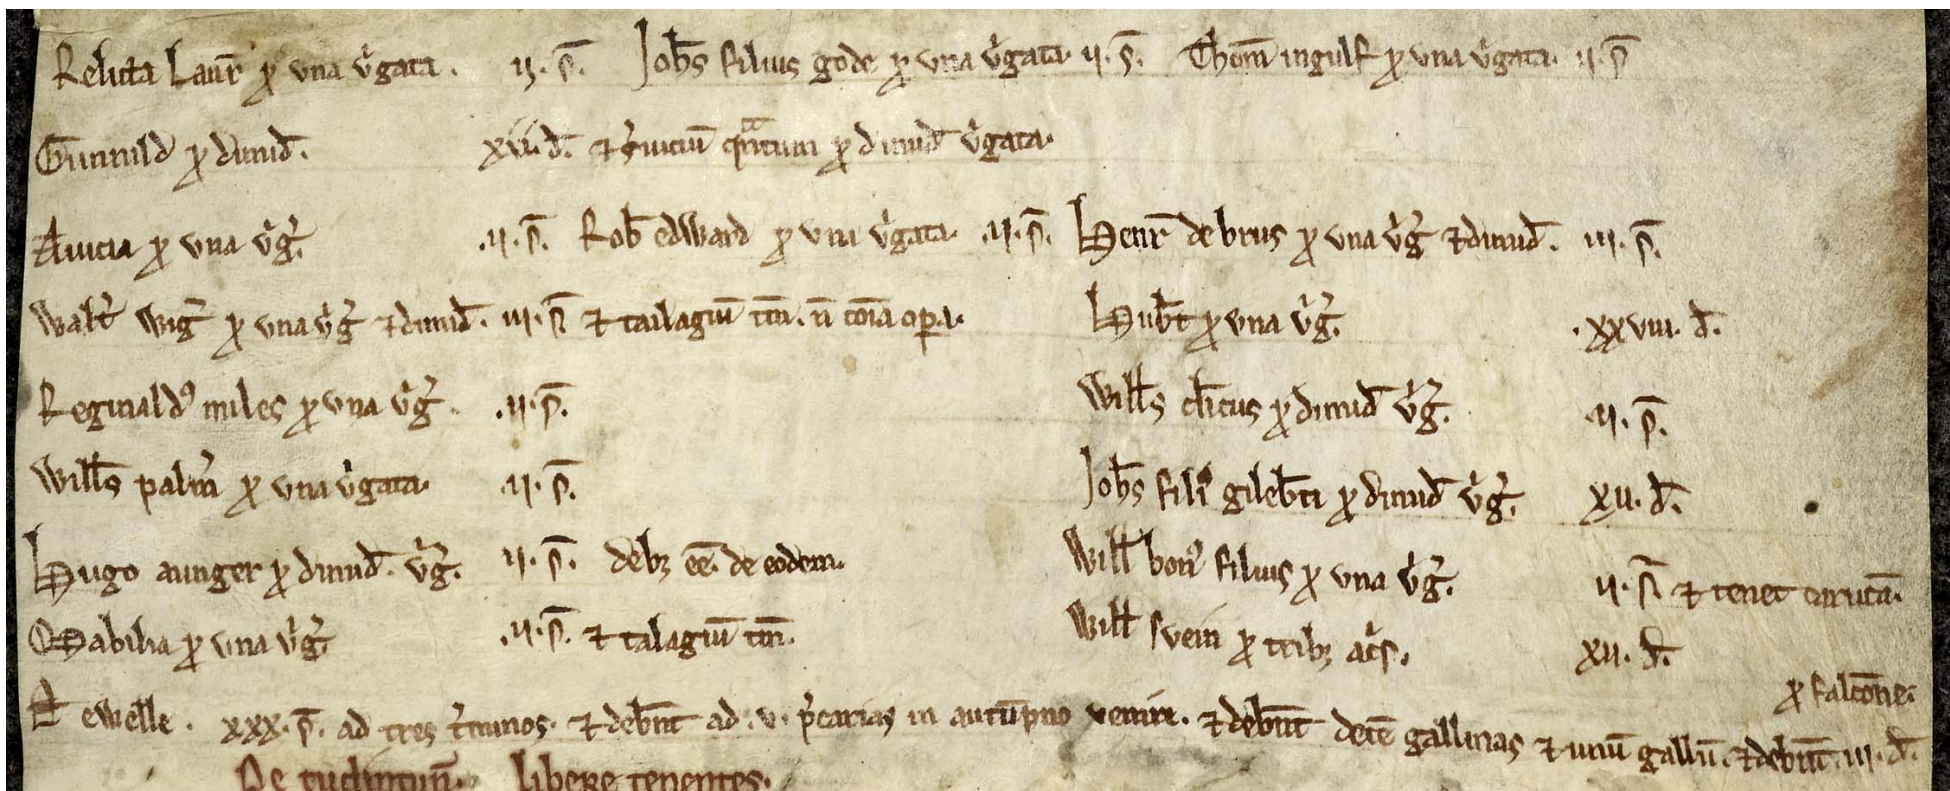 Relicta Laur̄ ꝓ vna v̓gata. ii. s̄. Joh̄s filius gode ꝓ vna v̓gata. ii. s̄. Thom̄ ingulf ꝓ vna v̓gata. ii. s̄
Gunnild ꝓ dimid̄. xii. d̄. ⁊ s̓uiciū qͣntum ꝓ dimid̄ v̓gata.
Auicia ꝓ vna v̓ḡ. .ii. s̄. Rob̄ edward ꝓ vna v̓gata. .ii. s̄. Henr̄ de brus ꝓ vna v̓ḡ ⁊ dimid̄. iii. s̄.
Walt̓ wiḡ ꝓ vna v̓ḡ ⁊ dimid̄. iii. s̄ ⁊ tailagiū tm̄. n̄ om̄ia oꝑa. Hub̄t ꝓ vna v̓ḡ. .xxviii. d̄.
Reginaldꝰ miles ꝓ vna v̓ḡ. .ii. s̄. Will̄s cl̄icus ꝓ dimid̄ v̓ḡ. .ii. s̄.
Will̄s palm̓ ꝓ vna v̓gata. .ii. s̄. Joh̄s fili gileb̄ti ꝓ dimid̄ v̓ḡ. xii. d̄.
Hugo aunger ꝓ dimid̄. v̓ḡ. ii. s̄. debꝫ ēē. de eodem. Will̄ bon̓ filius ꝓ vna v̓ḡ. ii. s̄ ⁊ tenet carucā.
Mabilia ꝓ vna v̓ḡ. .ii. s̄. ⁊ talagiū tm̄. Will̄ svein ꝓ tribꝫ ac̓s. xii. d̄.
ꝓ falcōne.
Ewelle. xxx. s̄. ad tres t̓minos. ⁊ deb̄nt ad .v. p̓carias in autūpno venire. ⁊ deb̄nt decē gallinas ⁊ unū gallū. ⁊ deb̄nt .iii. d̄.
libere tenentes.